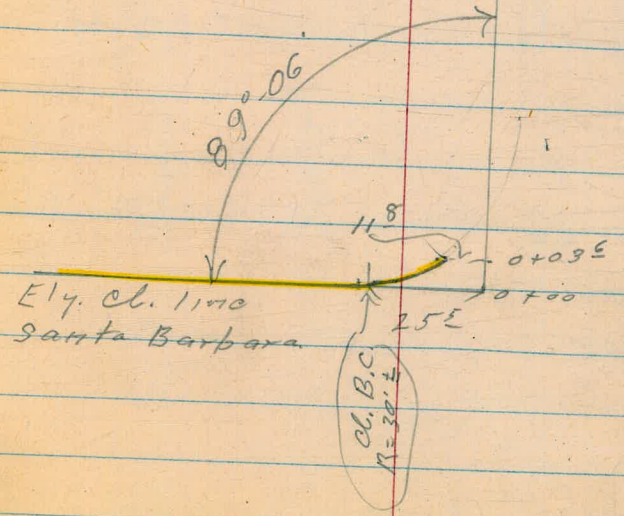 89°-06
11 8
0+03 6
0+00
Ely. cl. line
Santa Barbara
25 5
cl. B.C.
R=30'±